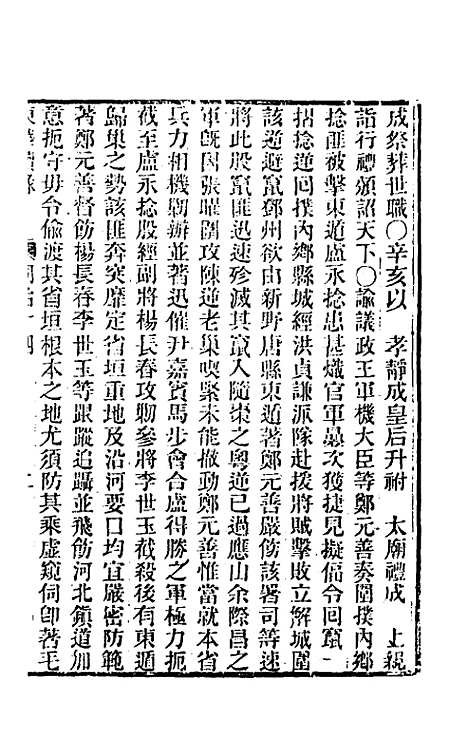 成祭葬世職〇辛亥以　孝靜成皇后升祔　太廟禮成　上親
詣行禮頒詔天下〇諭議政王軍機大臣等鄭元善奏圍撲內鄉
捻匪被擊東遁盧永捻患甚熾官軍曡次獲捷見擬偪令回竄一
摺捻逆回撲內鄉縣城經洪貞謙派隊赴援將賊擊敗立解城圍
該逆遁竄鄧州欲由新野唐縣東遁著鄭元善嚴飭該署司等速
將此股竄匪迅速殄滅其竄入隨棗之粵逆已過應山余際昌之
軍旣因張曜圍攻陳逆老巢喫緊未能撤動鄭元善惟當就本省
兵力相機勦辦並著迅催尹嘉賓馬步會合盧得勝之軍極力扼
截至盧永捻股經副將楊長春攻勦參將李世玉截殺後有東遁
歸巢之勢該匪奔突靡定省垣重地及沿河要口均宜嚴密防範
著鄭元善督飭楊長春李世玉等跟蹤追躡並飛飭河北鎭道加
意扼守毋令偸渡其省垣根本之地尤須防其乘虛窺伺卽著毛